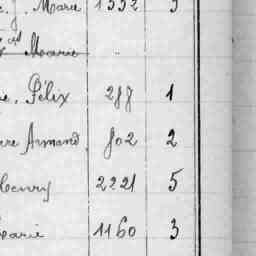 Marie 1332 3
Marie "
Félix 287 1
Armand 802 2
Henry 2221 5
Marie 1160 3